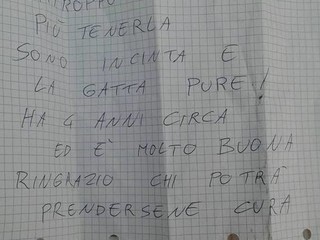 TROPPO
PIÙ TENERLA
SONO INCINTA E
LA GATTA PURE!
HA 4 ANNI CIRCA
ED È MOLTO BUONA
RINGRAZIO CHI POTRÀ
PRENDERSENE CURA